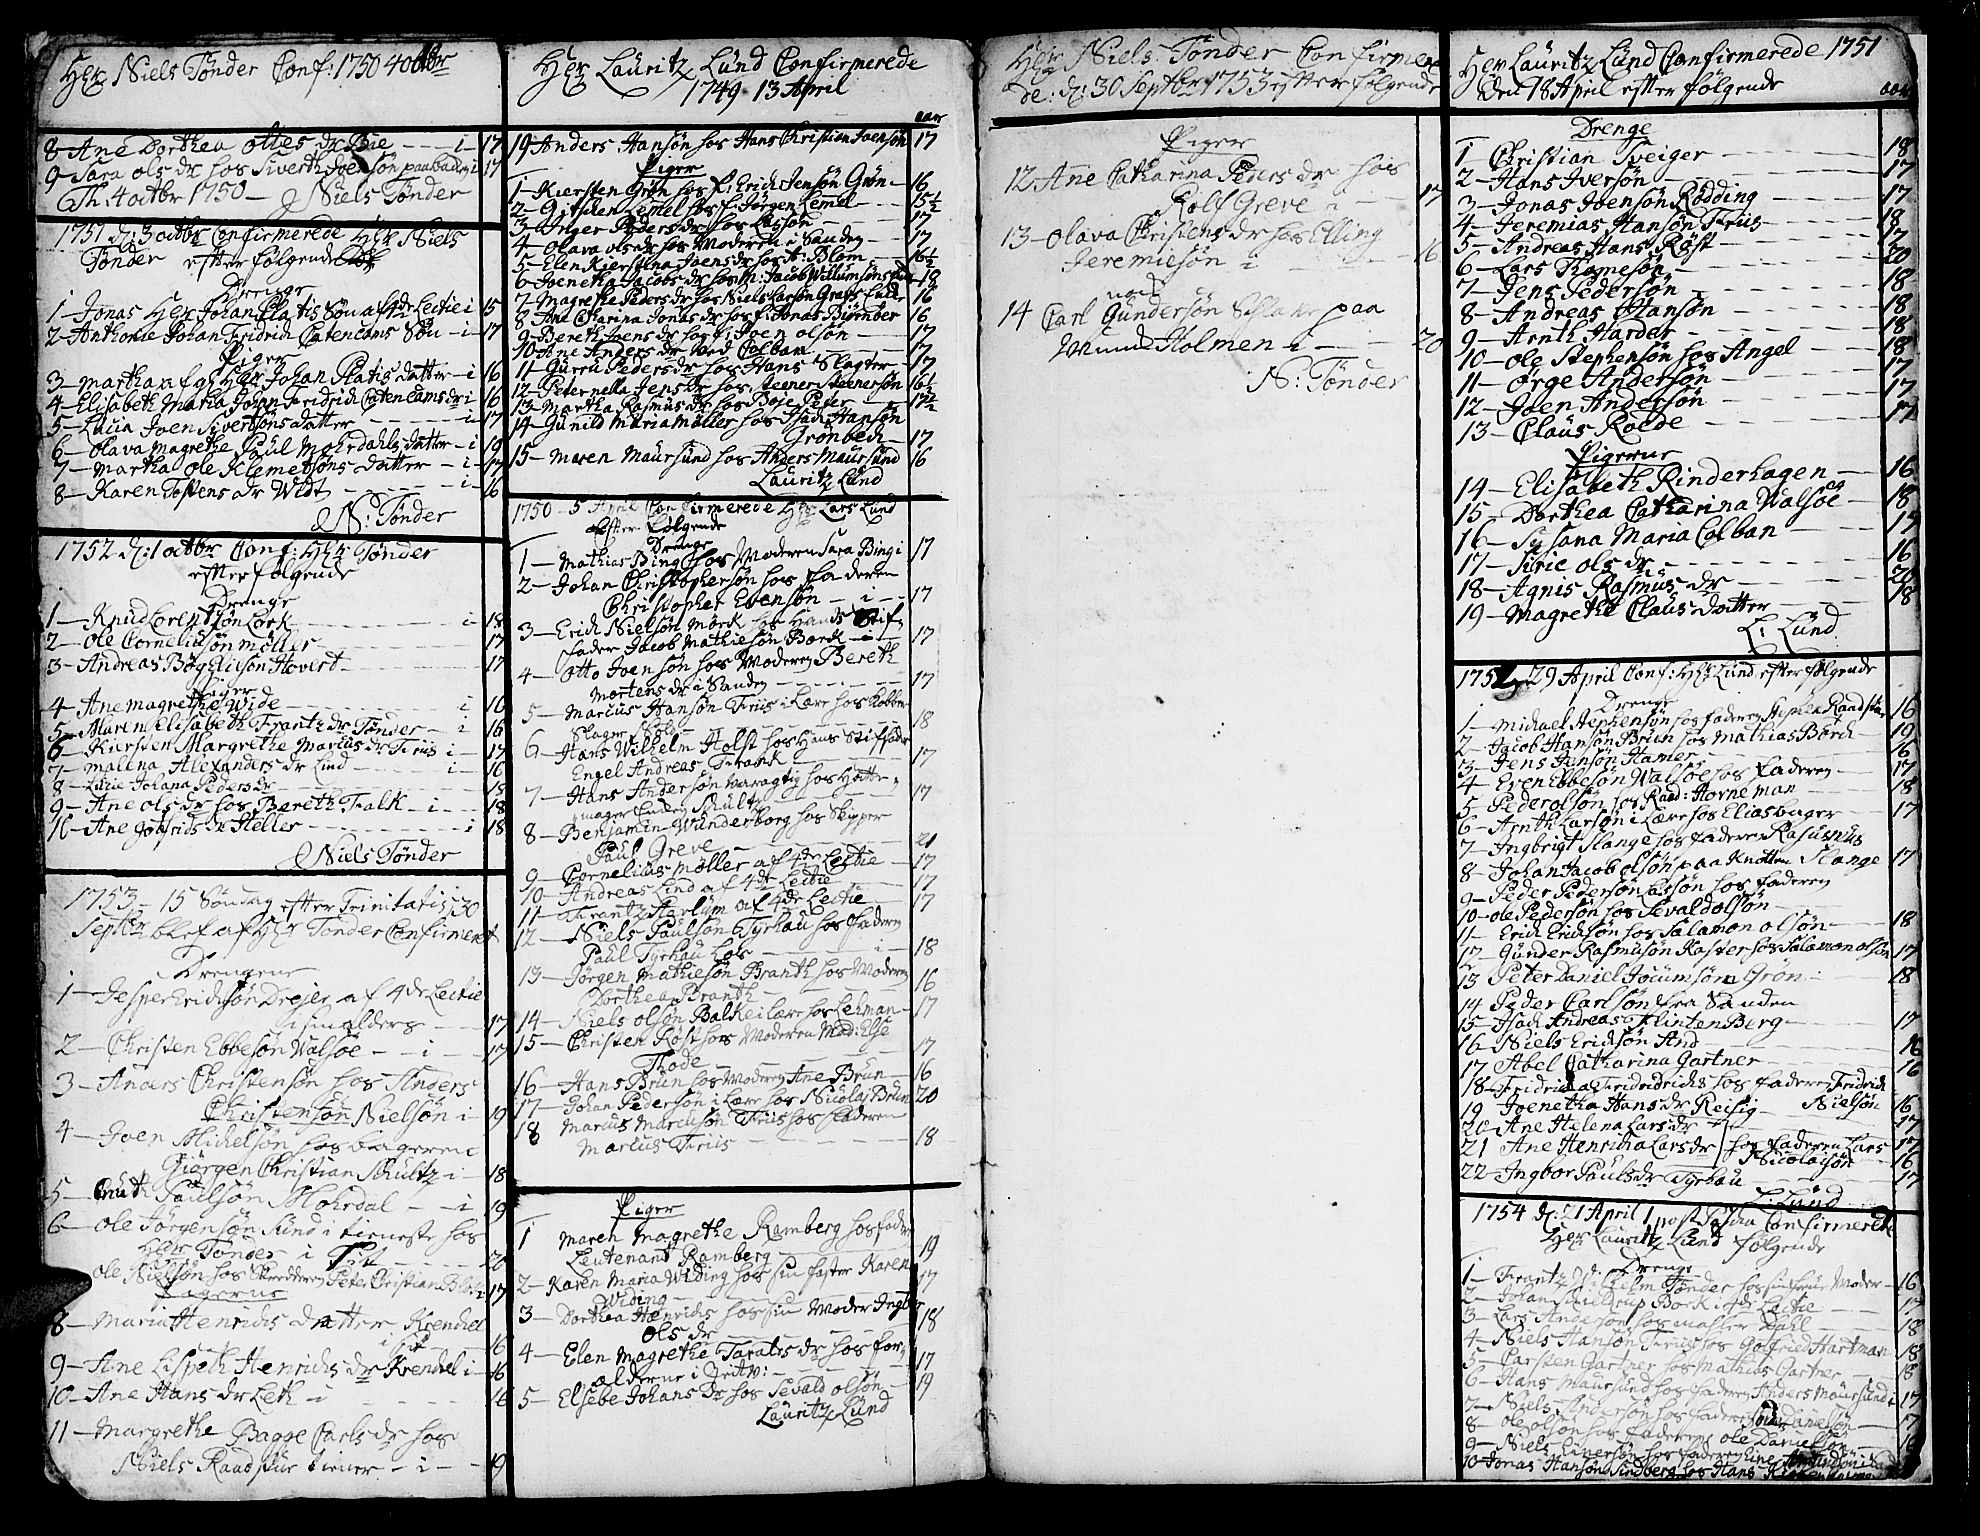 Her Niels Tønder Conf: 1750 4 octbr
8 - Ane Dorthea Ottes dr Bie - - i - 17
9 - Sara Ols dr hos Siverth Joensøn paa baden i 17
Th: 4 octbr 1750 - Niels Tønder
1751 d: 3 octbr Confirmerede Her Niels
Tønder efterfølgende
Drenge
1 - Jonas Her Johan Platis Søn af 4de Lectie i 15
2 - Anthonie Johan Fridrich Catencams Søn - i - 17
Piger
3 - Martha Her Johan Platis datter - i 16
4 - Elisabeth Maria Johan Fridrich Catencams dr i 16
5 - Lucia Joen Sivertsøns datter - i - 17
6 - Olava Magrethe Paul Mohrdahls datter - i 19
7 - Martha Ole Klemetsøns datter - i - 17
8 - Karen Tostens dr Widt - - - i - 16
N: Tønder
1752 d: 1 octbr Conf: Her Tønder
efterfølgende
Drenge
1 - Knud Lorck - i 18
2 - Ole Corneliusøn Møller - 17
3 - Andreas Hovert - 17
Piger
4 - Ane Magrethe Wide - i 16
5 - Maren Elisabeth Frantz dr Tønder - i 16
6 - Kiersten Margrethe Marcus dr Friis i - 17
7 - Malena Alexanders dr Lind - i - 16
8 - Johana Peders dr - 18
9 - Ane Ols dr hos Bereth Falk - i - 18
10 - Ane dr Heller - i 18
Niels Tønder
1753 - 15 Søndag efter Trinitatis, 30
Septbr blef af Her Tønder Confirmeret
Drengene
1 - Jesper Erichsøn Drejer af 4de Lectie
- 17
2 - Christen Ebbesøn Walsøe - i - 17
3 - Anders Christensøn hos Anders
Christensøn Nielsøn i - 19
4 - Joen Michelsøn hos bageren
Giørgen Christian Schultz i - 18
5 - Paulsøn Mohrdal - i 19
6 - Ole Jørgensøn Sund i tieneste hos
Her Tønder i - 20
Ole Nielsøn hos Skredderen Peter Christian - i 17
Pigerne
8 - Maria Henrichs datter Krenckel
- 16
9 - Ane Lisbeth Henrichs dr Krenckel i - 16
10 - Ane Hans dr Leth i - 16
11 - Margrethe Bagge Carls dr hos
Niels Raadstue tiener - i - 19
Her Lauritz Lund Confirmerede
1749 13 April
aar
19 Anders Hansøn hos Hans Christian Joensøn 17
Piger
1 - Kiersten Grøn hos F: Erich Jensøn Grøn - 16
2 - Gitchen Lemel hos F: Jørgen Lemel - 15½
3 - Inger Peders dr hos Lassøn - 17
4 - Olava Ols dr hos Moderen i Sanden - 17
5 - Elen Kierstina Joens dr hos Blom - 16½
6 - Joenetha Jacobs dr hos M: Jacob Willumsøns - 19
7 - Magrethe Peders dr hos Niels Larsøn - 16
8 - Ane Catharina Jonas dr hos F: Jonas Biørnber 16
9 - Bereth Joens dr hos F: Joen Olsøn - 17
10 - Ane Anders dr ved Colban - 17
11 - Gurru Peders dr hos Hans Slagter - 17
12 - Peternella Jens dr hos Steener Steenersøn 16½
13 - Martha Rasmus dr hos Boje Peter - 17½
14 - Gunild Maria Møller hos Isach Hansøn
Grønbech - 17
15 - Maren Maursund hos Anders Maursund 16
Lauritz Lund
1750 - 5 April Confirmerede Her Lars Lund
Efter følgende
Drenge
1 - Mathias Bing hos Moderen Sara Bing i 17
2 - Johan Christophersøn hos Faderen
Christopher Evensøn - i - 17
3 - Erich Nielsøn Mørk hos Hands Stif
fader Jacob Mathiesøn Børck - i - 17
4 - Otto Joensøn hos Moderen Bereth
Mortens dr i Sanden - 17
5 - Marcus Hansøn Friis i Lære hos Kobber
Slager - 18
6 - Hans Wilhelm Holst hos Hans Stiffader
Engel Andreas Frank - 17
7 - Hans Andersøn hos Hatte
mager Schultz - 17
8 - Benjamin Wunderborg hos Skipper
Paul Greve - 21
9 - Cornelius Møller af 4de Lectie - 17
10 - Andreas Lind af 4de Lectie - 17
11 - Frantz af 4de Lectie - 17
12 - Niels Paulsøn Tyrhau hos Faderen
Paul Tyrhau hos - i - 18
13 - Jørgen Mathiesøn Branth hos Moderen
Dorthea Branth - 16
14 - Niels Olsøn Balke i Lære hos Lehman - 17
15 - Christen Røst hos Moderen Mad: Else
Thode - 17
16 - Hans Brun hos Moderen Ane Brun - 16
17 - Johan Pedersøn i Lære hos Nicolaj Brun 20
18 Marcus Marcusøn Friis hos Faderen
Marcus Friis - 18
Piger
1 Maren Magrethe Ramberg hos fader
Leutenant Ramberg - 19
2 - Karen Maria Widing hos sin faster Karen
Widing - 17
3 - Dorthea Henrichs hos sin Moder Ingbor
Ols dr - 18
4 - Elen Magrethe Tarals dr hos for
ælderne i - 17
5 - Elsebe Johans dr hos Sevald Olsøn - 19
Lauritz Lund
Her Niels Tønder Confirmere
de: d: 30 Septbr 1753 efterfølgende
Piger
12 Ane Catharina Peders dr hos
Rolf Greve i - 17
13 - Olava Christens dr hos Elling
Jeremiesøn i - 16
14 Carl Gundersøn paa
Munckholmen i - 20
N: Tønder
Her Lauritz Lund Confirmerede 1751
Den 18 April efterfølgende
aar
Drenge
1 - Christian Sveiger - 18
2 - Hans Iversøn - 17
3 - Jonas Joensøn Rødding - 17
4 - Jeremias Hansøn Friis - 18
5 - Andreas Hans Røst - 17
6 - Lars Thomesøn - 20
7 - Jens Pedersøn - 18
8 - Andreas Hansøn - 18
9 - Arnth Harder - 18
10 - Ole Stephensøn hos Angel - 18
11 - Ørge Andersøn - 17
12 - Joen Andersøn - 17
13 - Claus Rode - 17
Pigerne
14 - Elisabeth Rinderhagen - 16
15 - Dorthea Catharina Walsøe - 18
16 - Susana Maria Colban - 17
17 - Sirie Ols dr - 16
18 - Agnis Rasmus dr - 20
19 - Magrethe Claus datter - 18
L: Lund
1752 29 April Conf: Her Lund efterfølgende
Drenge
1 - Michael Stephensøn hos faderen Stephen Raadstue 16
2 - Jacob Hansøn Brun hos Mathias Børch - 19
3 - Jens Jensøn Hamer - 16
4 - Even Ebbesøn Walsøe hos Faderen - 17
5 - Peder Olsøn hos Raad: Horneman - 18
6 - Arnth Larsøn i Lære hos Elias bager - 17
7 - Ingbrigt Stange hos faderen Rasmus
8 - Johan Jacob Olsøn paa Knotten Stange 17
9 - Peder Pedersøn Lassøn hos Faderen
10 - Ole Pedersøn hos Sevald Olsøn -
11 - Erich Erichsøn hos Salamon Olsøn - 18
12 - Gunder Rasmusøn Kaster hos Salamon Olsøn 17
13 Peter Daniel Jocumsøn Grøn - 18
14 Peder Carlsøn fra Sanden
15 - Isach Andreas Flintenberg - 17
16 Niels Erichsøn And - 16
17 Abel Catharina Gartner - 16
18 - Fridricha Fridrichs hos Faderen Fridrich
Nielsøn 16
19 Joenetha Hans dr Reisig
20 - Ane Helena Lars dr - 17
21 Ane Henricha Lars dr hos Faderen Lars 17
Nicolaisøn 16
22 - Ingbor Pauls dr Tyrhau - 17
L: Lund
1754 d: 21 April 1 post Pascha Confirmerede
Her Lauritz Lund følgende
Drenge
1 - Frantz Wilhelm Tønder hos sin Moder - 16
2 - Johan Bork i 4de Lectie - 17
3 - Lars Andersøn hos mahler Dahl - 18
4 - Niels Hansøn Friis hos Gotfried Hartman 18
5 - Carsten Gartner hos Mathias Gartner - 18
6 - Hans Maursund hos Faderen Anders Maursund i 17
7 - Niels Andersøn hos Faderen Danielsøn - 17
8 - Ole Olsøn hos Faderen Ole Danielsøn
9 - Niels Einersøn hos Faderen
10 - Jonas Hansøn Lindberg hos Hans